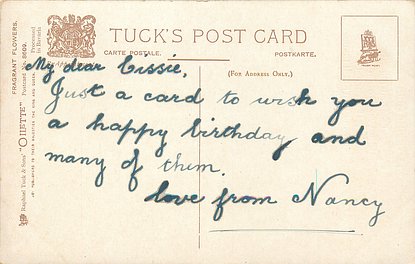 TUCK'S POST CARD
CARTE POSTALE.
POSTKARTE.
(FOR ADDRESS ONLY.)
My dear Cissie,
Just a card to wish you
a happy birthday and
many of them.
love from Nancy
Raphael Tuck & Sons' "OILETTE"
FRAGRANT FLOWERS.
Postcard No. 8669.
Processed
in Bavaria